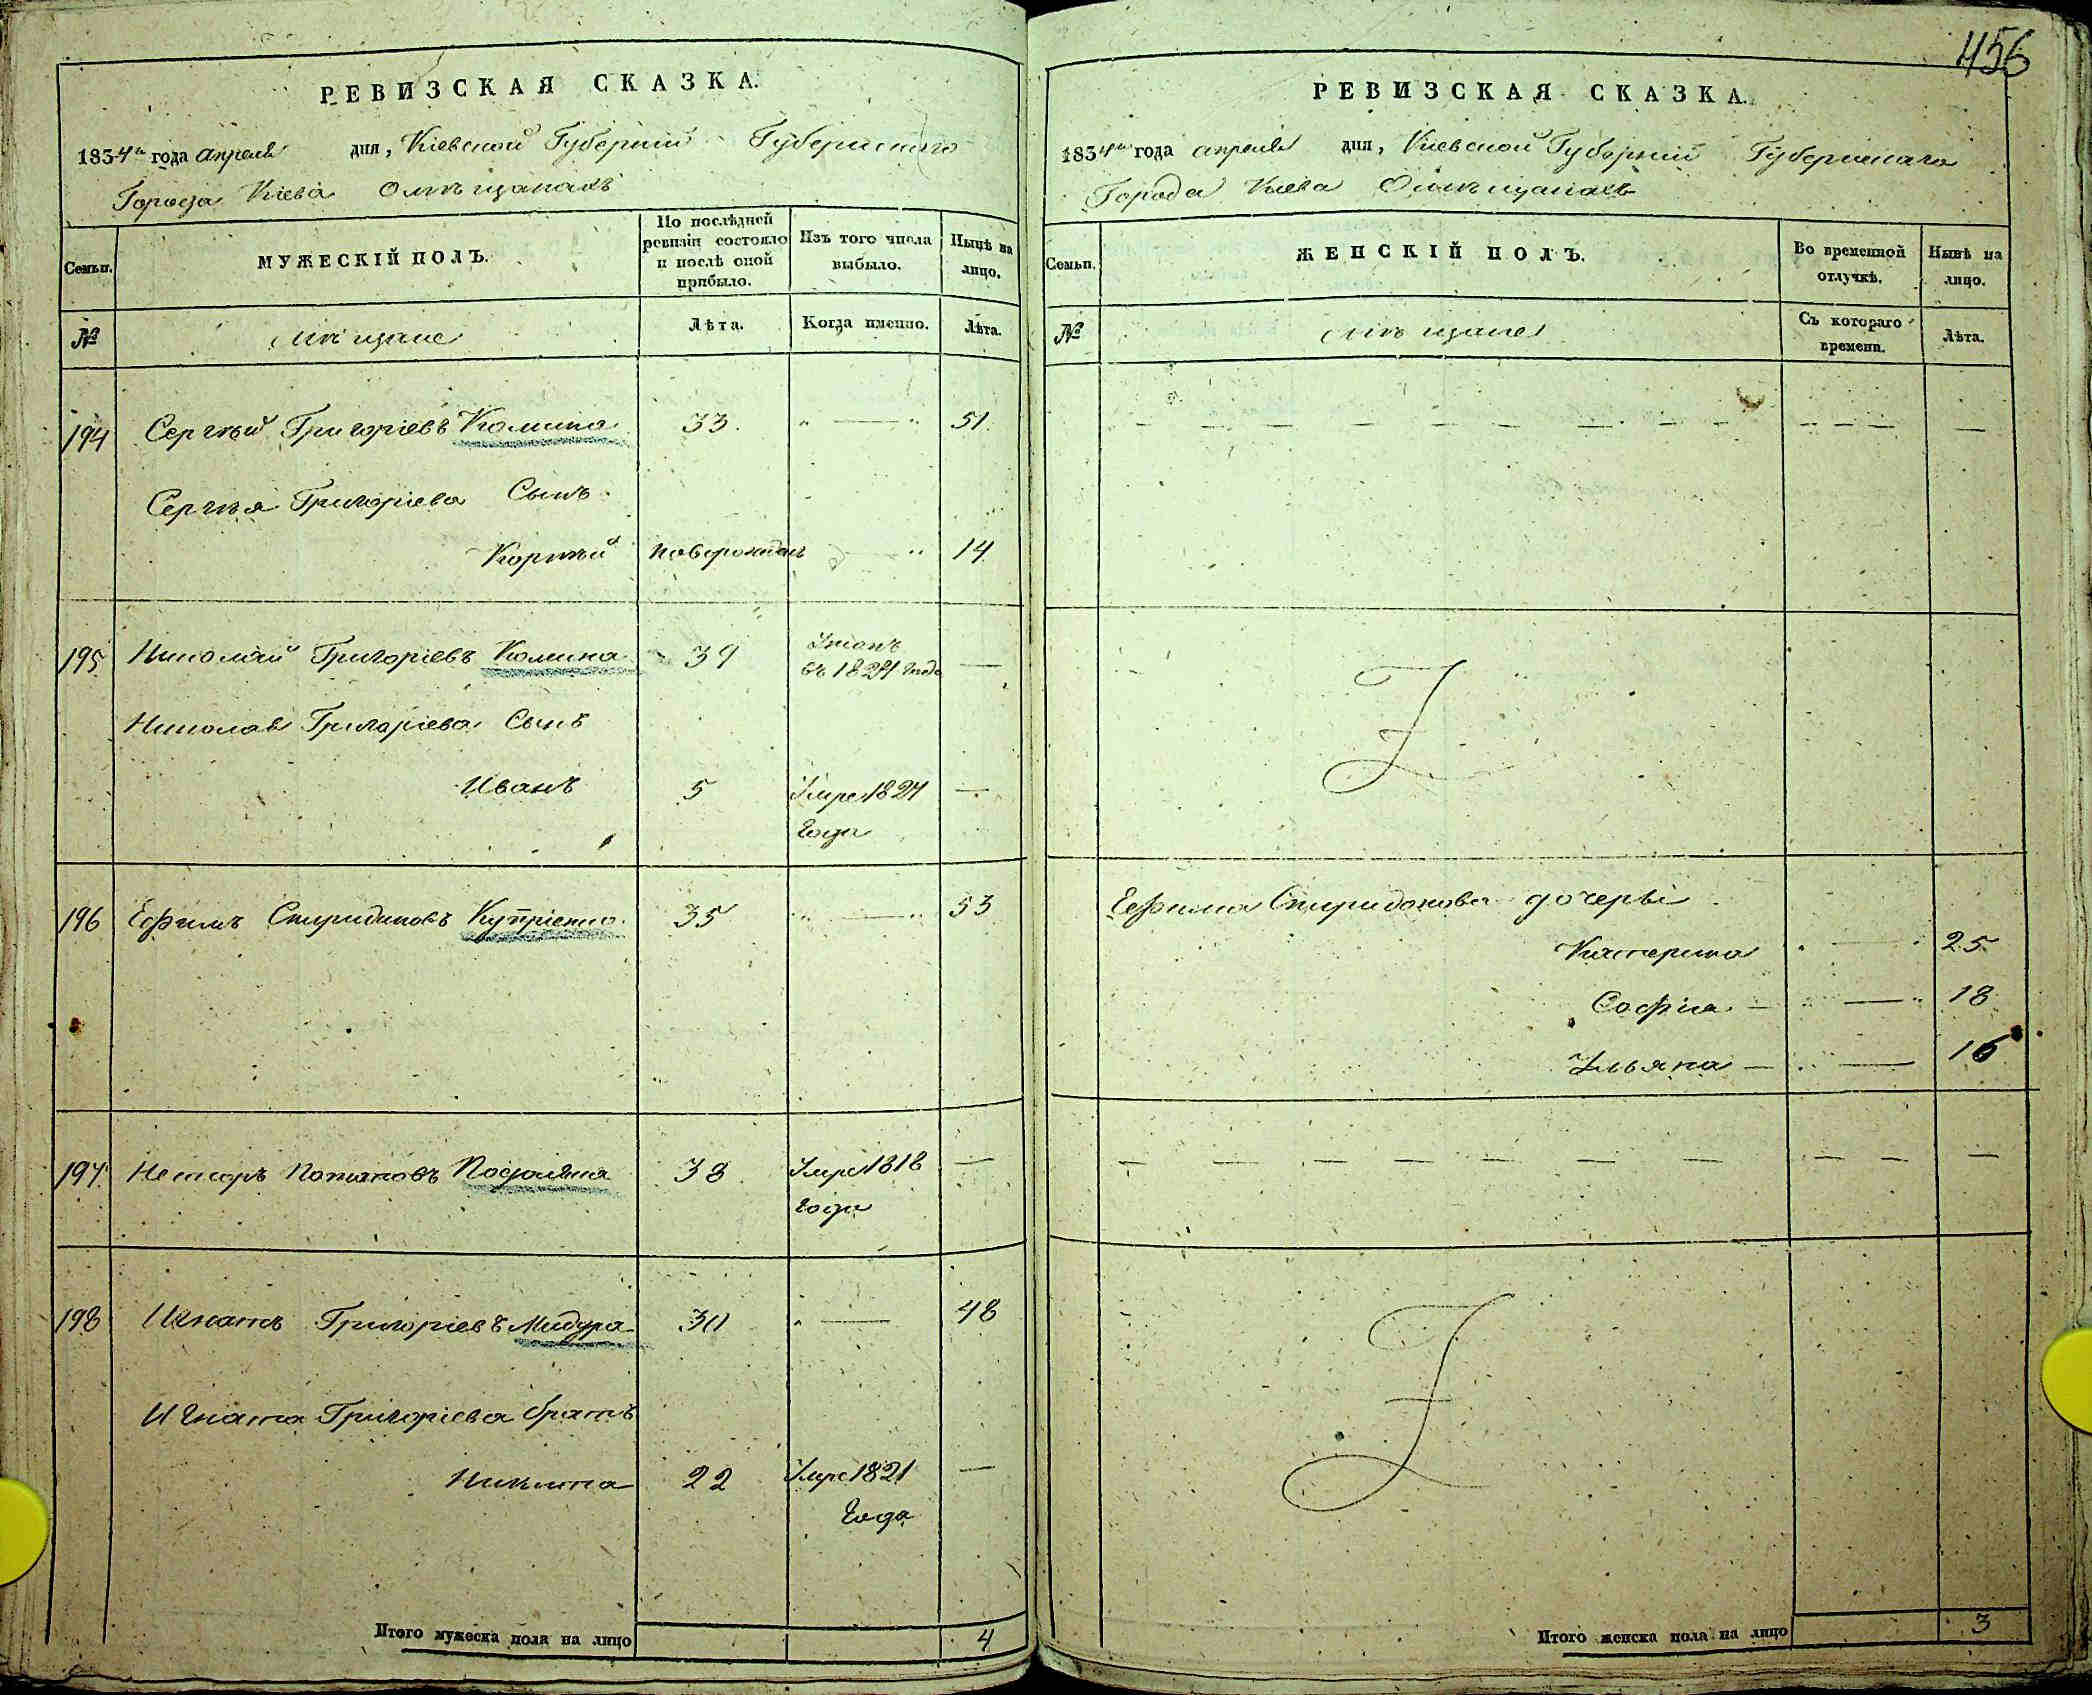 РЕВИЗСКАЯ СКАЗКА.
1834го года апреля дня, Кіевской Губерніи Губернскаго
Города Кіева О мѣщанахъ
Семьи.
МУЖЕСКІЙ ПОЛЪ.
По послѣдней ревизіи состояло и послѣ оной прибыло.
Изъ того числа выбыло.
Нынѣ на лицо.
№
мѣщане
Лѣта.
Когда именно.
Лѣта.
194 Сергѣй Григоріевъ Комина 33. 51.
Сергѣя Григоріева Сынъ
Корнѣй новорожден 14
195 Николай Григоріевъ Комина 39
въ 1824 года —
Николая Григоріева Сынъ
Иванъ 5 Умре 1824 —
года
196 Ефимъ Спиридоновъ Купріенко 35 53
197 Несторъ Потаповъ Подоляка 38 Умре 1818 —
года
198 Игнатъ Григоріевъ Мидура 30 48
Игната Григоріева братъ
Никита 22 Умре 1821 —
года
Итого мужеска пола на лицо 4
456
РЕВИЗСКАЯ СКАЗКА.
1834го года апреля дня, Кіевской Губерніи Губернскаго
Города Кіева О мѣщанахъ
Семьи.
ЖЕНСКІЙ ПОЛЪ.
Во временной отлучкѣ.
Нынѣ на лицо.
№
мѣщане
Съ котораго времени.
Лѣта.
Ефима Спиридонова дочери
Катерина 25.
Софіа 18
Ульяна 16
Итого женска пола на лицо 3